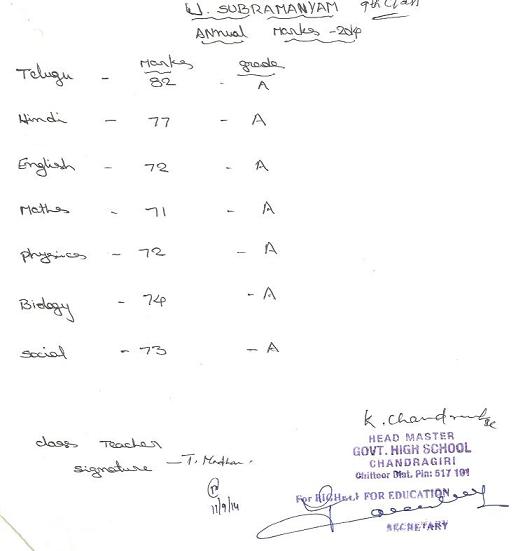 U. SUBRAMANYAM 9th Class
Annual Marks - 2014
Marks grade
Telugu - 82 - A
Hindi - 77 - A
English - 72 - A
Mathes - 71 - A
physics - 72 - A
Biology - 74 - A
social - 73 - A
K. Chandra
HEAD MASTER
GOVT. HIGH SCHOOL
CHANDRAGIRI
Chittoor Dist. Pin: 517 101
class Teacher
signature - T. Madhan.
11/9/14
For RIGHT FOR EDUCATION
SECRETARY